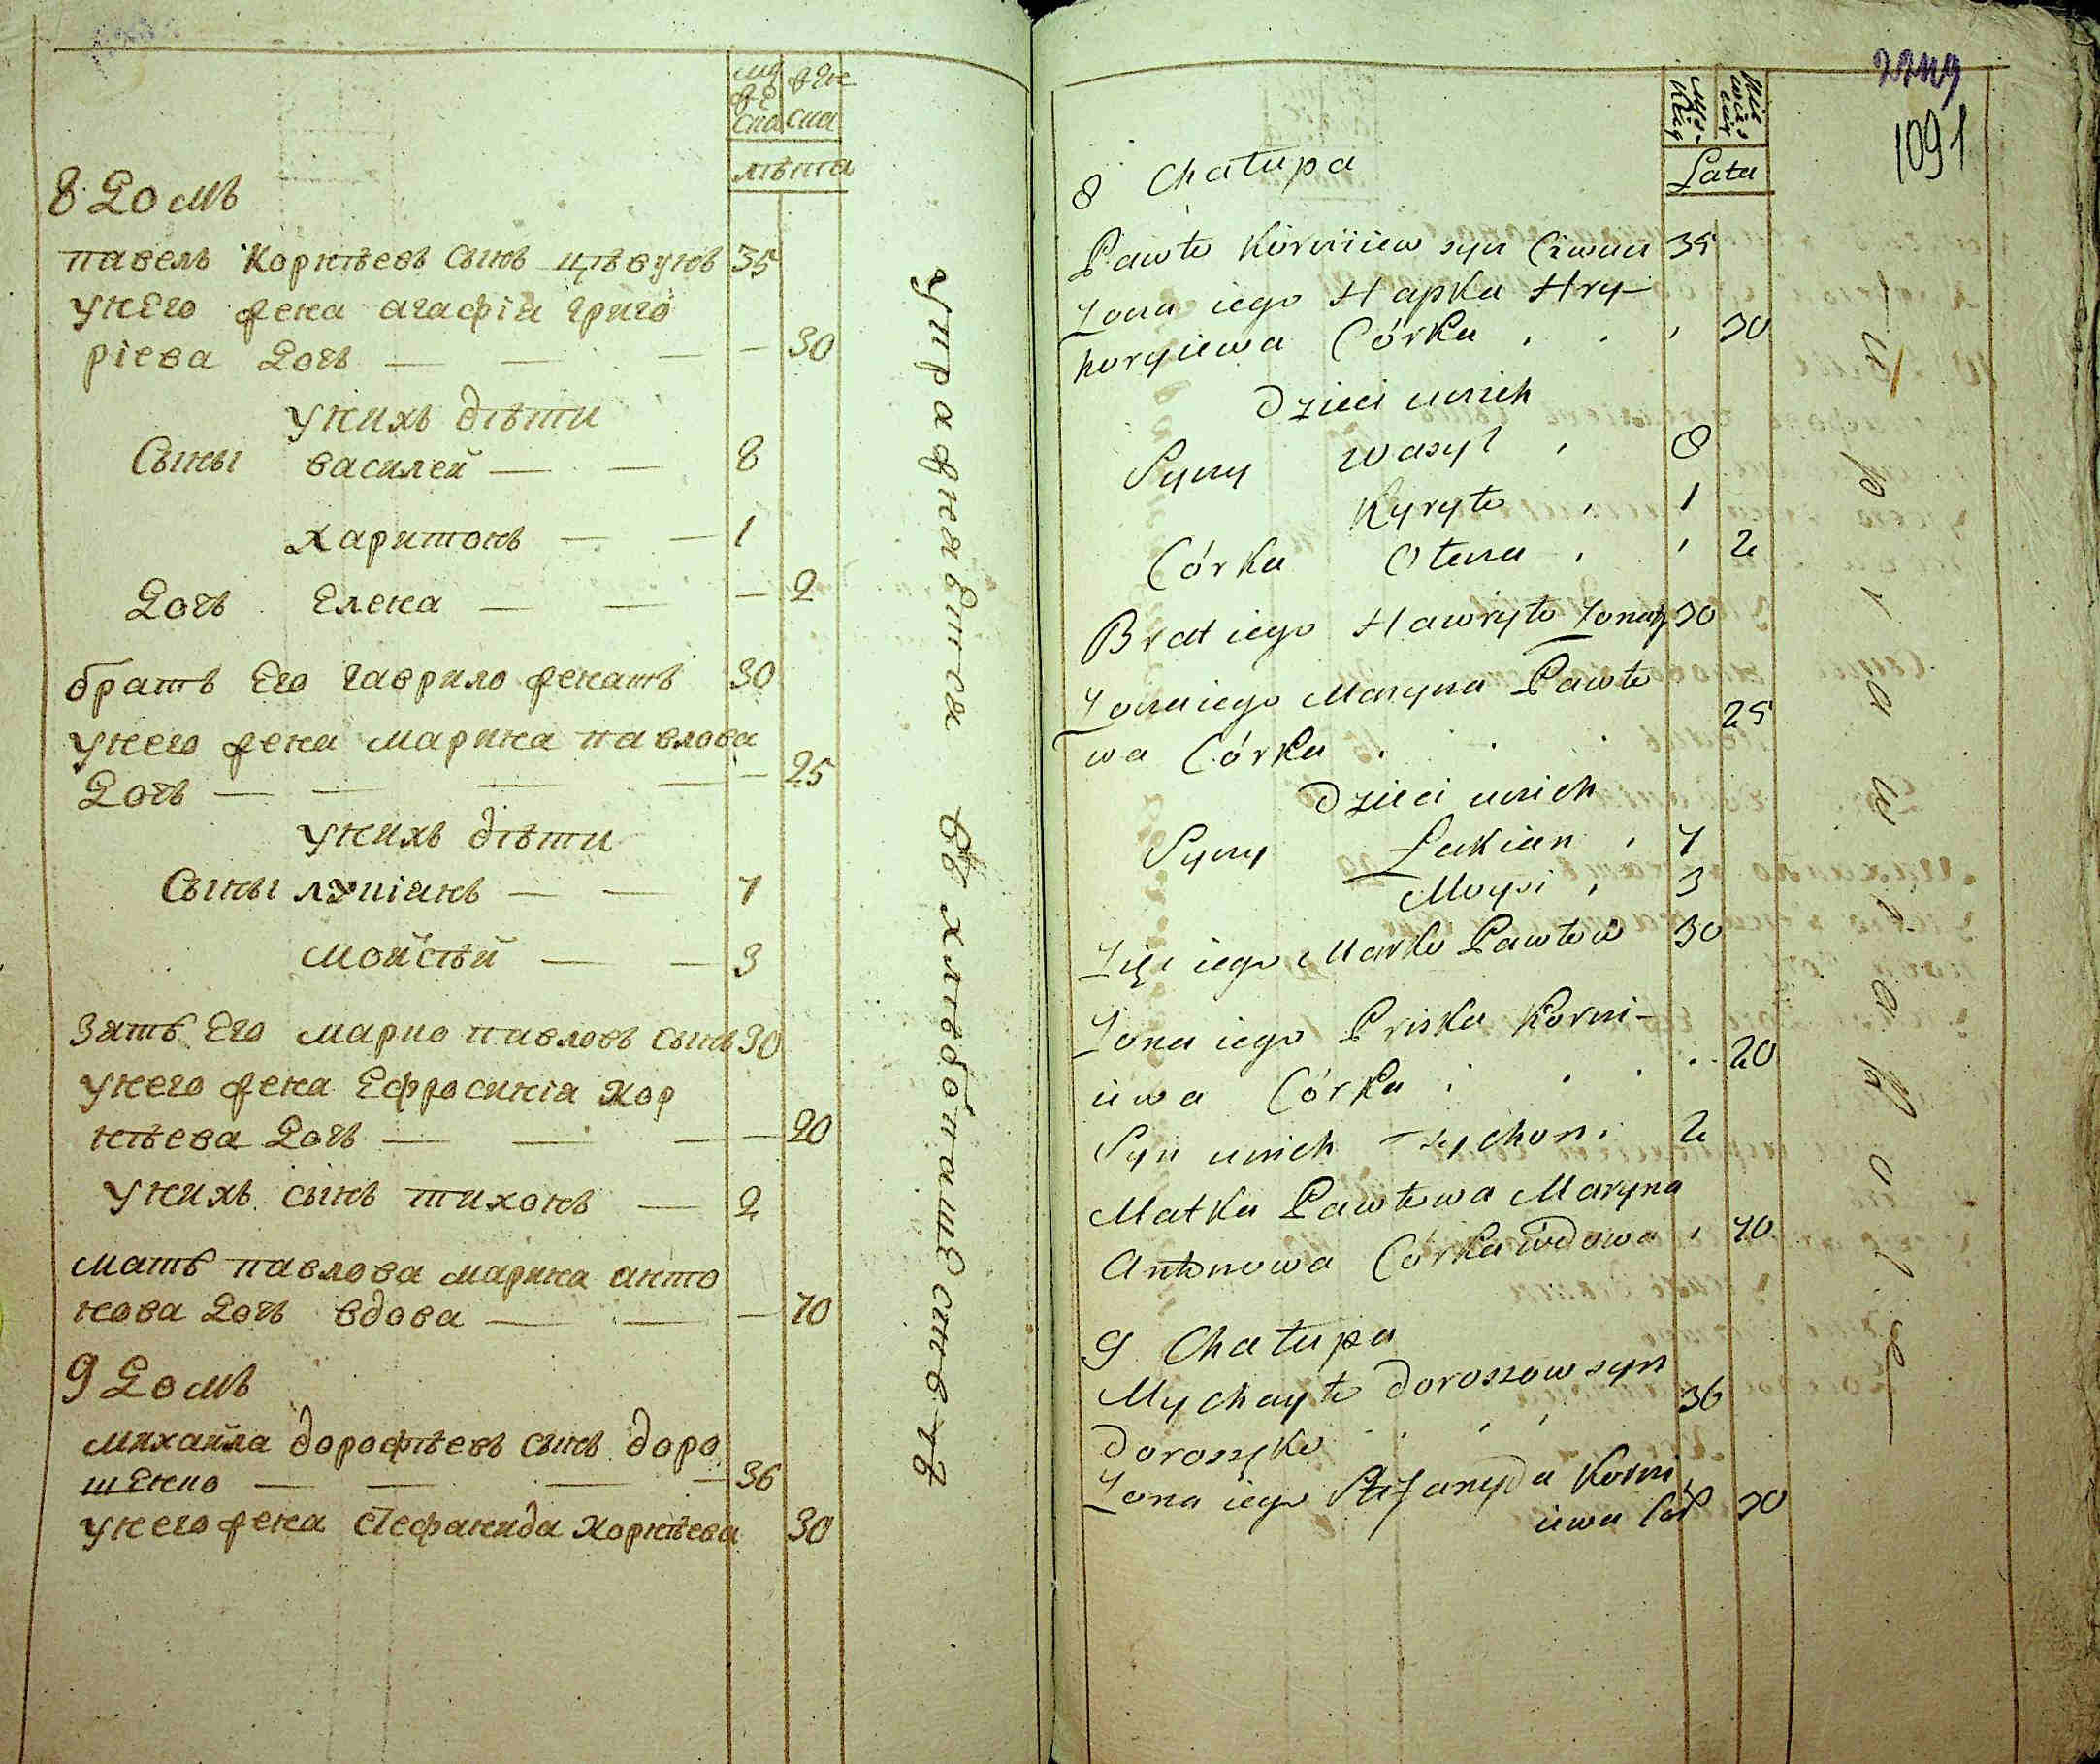 муж
ска
жен
ска
лѣта
8 Домъ
павелъ Корнѣевъ сынъ цѣвунъ 35
унего жена агафiя григо
рiева Дочь — — — — 30
унихъ дѣти
Сыны василей — — 8
харитонъ — — 1
Дочь Елена — — — 2
братъ Его гаврило женатъ 30
унего жена марина павлова
Дочь — — — — — 25
унихъ дѣти
Сыны лукiянъ — — 7
мойсѣй — — 3
Зять Его марко павловъ сынъ 30
унего жена Ефросинiя кор
нѣева Дочь — — — — 20
унихъ сынъ тихонъ — 2
мать павлова марина анто
нова Дочь вдова — — — 70
9 Домъ
михайла дорофѣевъ сынъ доро
шенко — — — — 36
унего жена стефанида корнѣева 30
упражняется въ хлѣбопашествѣ
1091
Lata
8 Chałupa
Pawło Korniiew syn Ciwun 35
Żona iego Hapka Hry-
horyiewa Córka . . , 30
Dzieci unich
Syny Wasyl , 8
Kyryło , 1
Córka Ołena , , 2
Brat iego Hawryło Żonaty 30
Żona iego Maryna Pawło
wa Córka . . . 25
Dzieci unich
Syny Łukian , 7
Moysi , 3
Zięć iego Marko Pawłow 30
Żona iego Priska Korni-
iewa Córka . . . . 20
Syn unich Tychon . 2
Matka Pawłowa Maryna
Antonowa Córka wdowa , 70
9 Chałupa
Mychayło Doroszow syn
Doroszko . , , 36
Żona iego Stefanyda Korni
iewa Cór 30